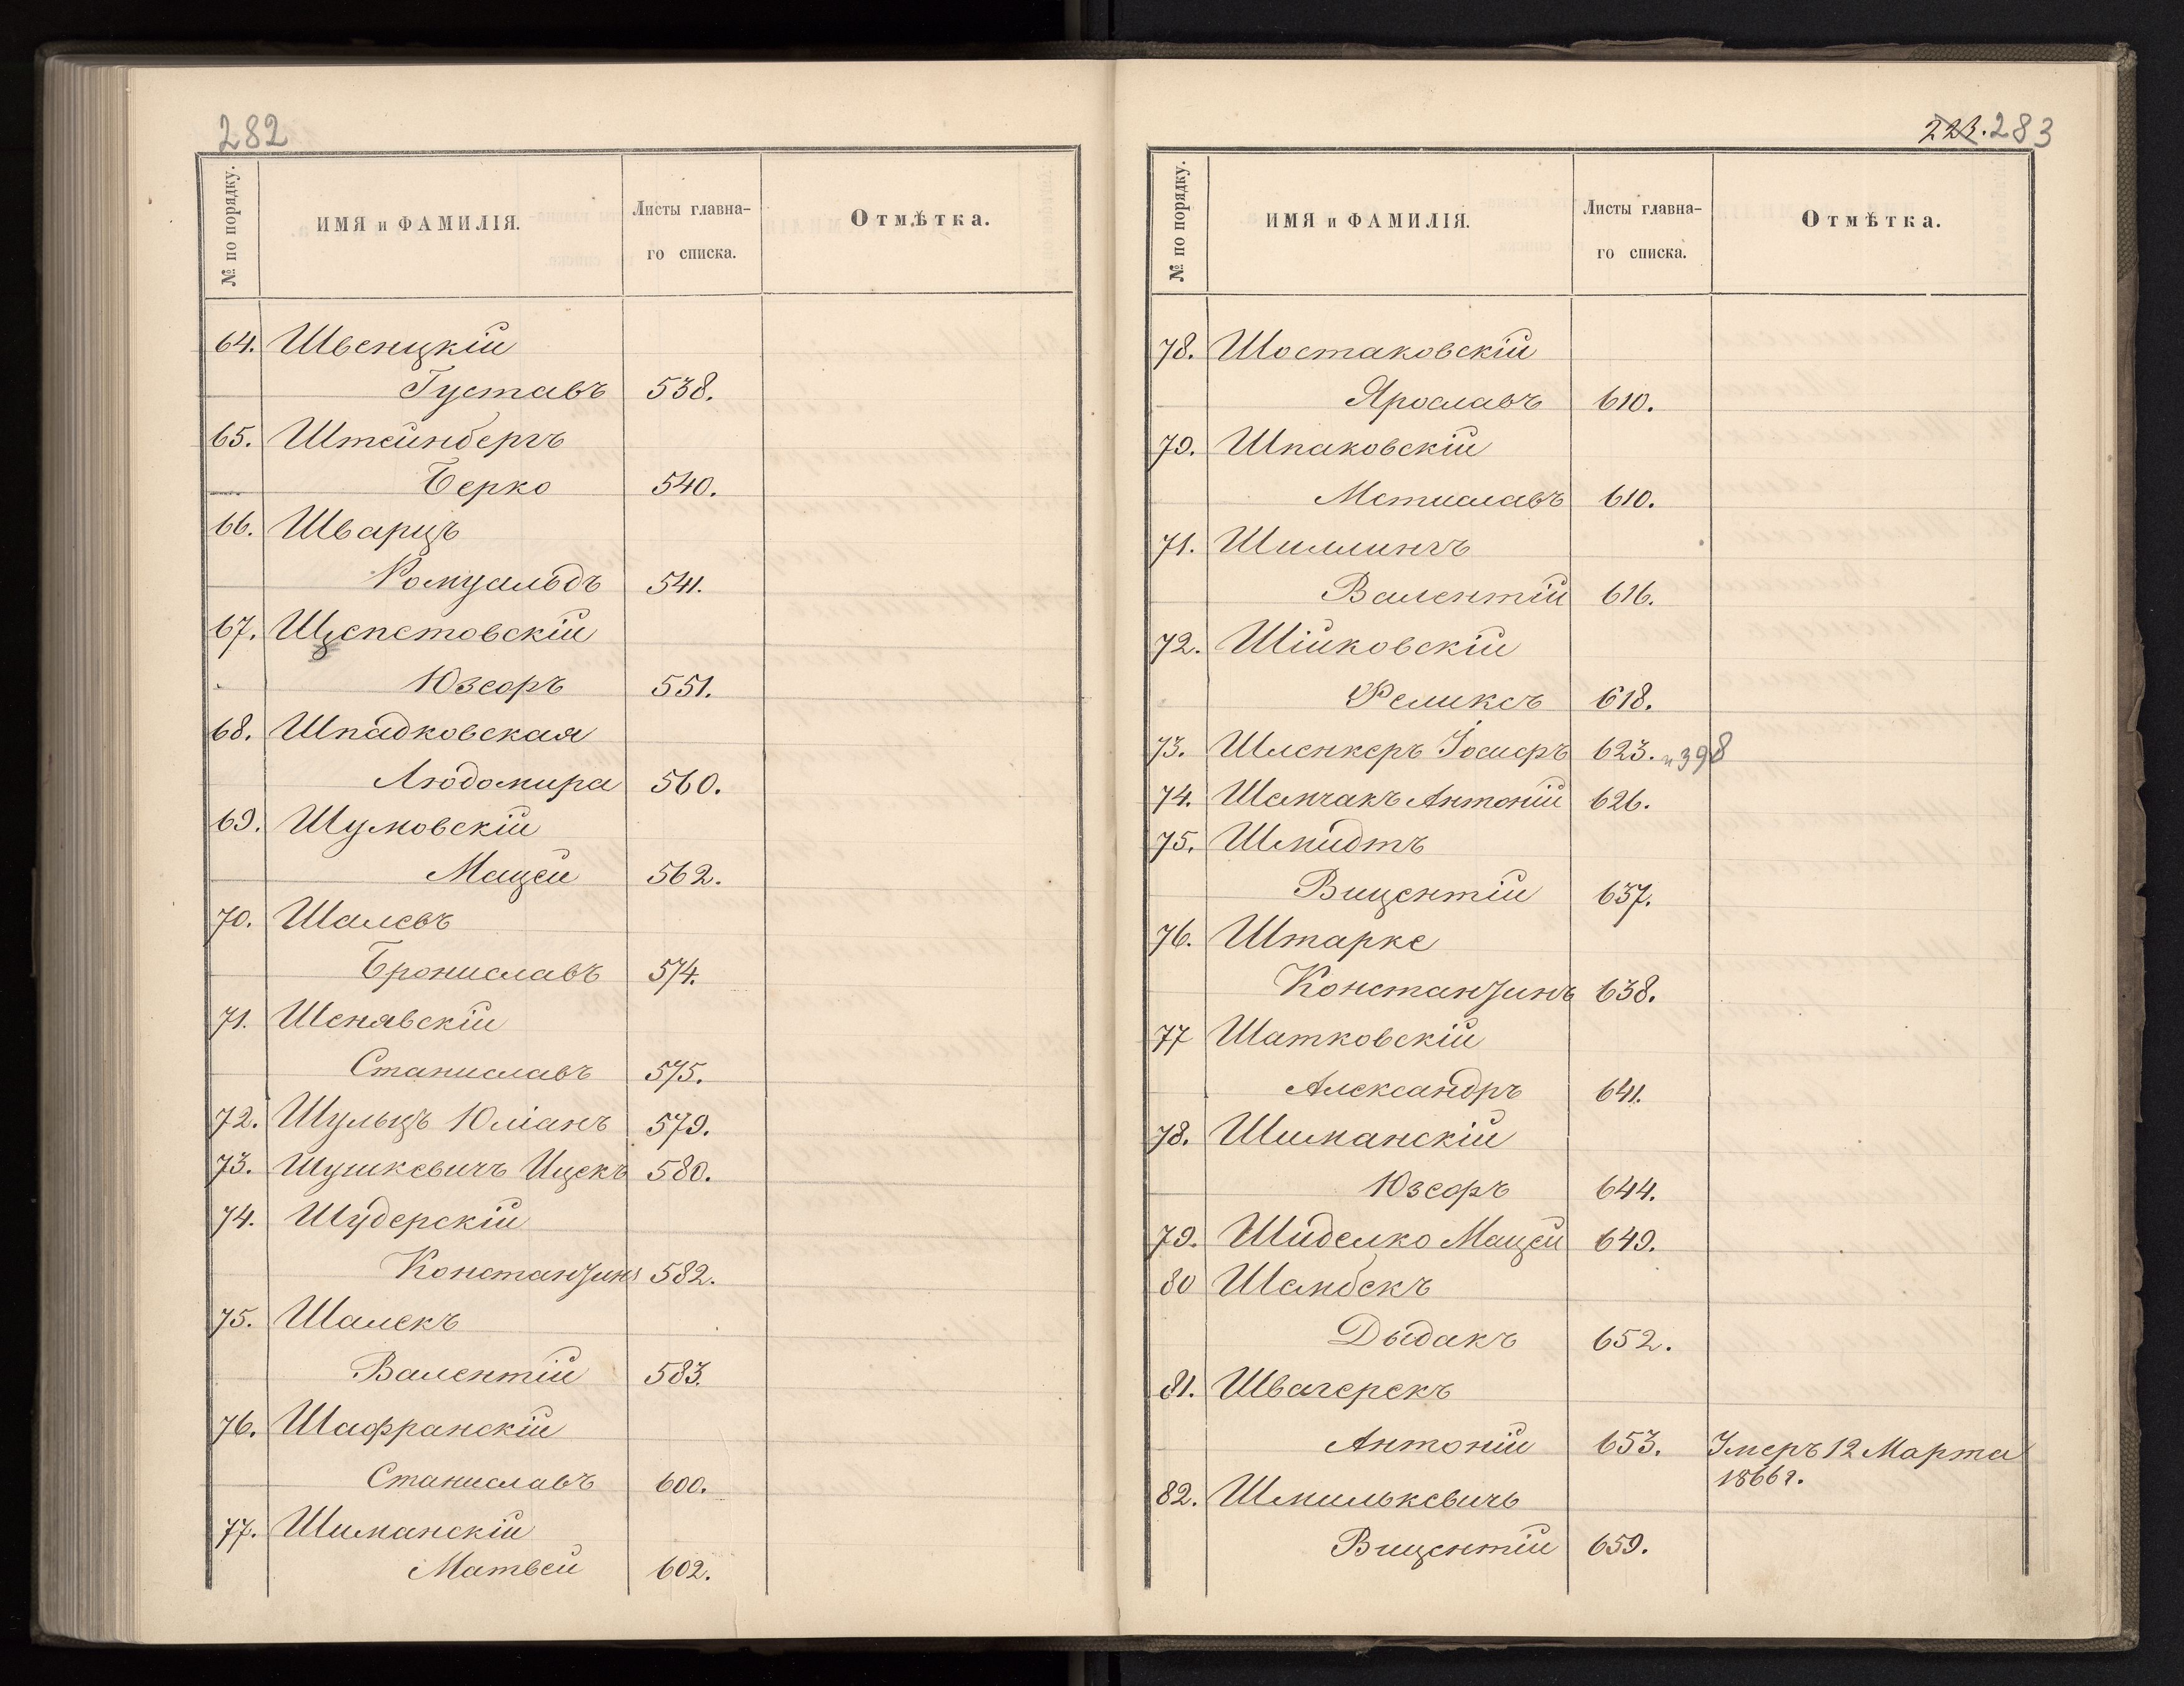 282
№ по порядку.
ИМЯ и ФАМИЛІЯ.
Листы главна-
го списка.
Отмѣтка.
64. Швеницкій
Густавъ 538.
65. Штейнбергъ
Берко 540.
66. Шварцъ
Ромуальдъ 541.
67. Щепетовскій
Юзефъ 551.
68. Шпадковская
Людомира 560.
69. Шумовскій
Мацей 562.
70. Шалевъ
Брониславъ 574.
71. Шенявскій
Станиславъ 575.
72. Шульцъ Юліанъ 579.
73. Шушкевичъ Ицекъ 580.
74. Шудерскій
Константинъ 582.
75. Шалекъ
Валентій 583.
76. Шафранскій
Станиславъ 600.
77. Шиманскій
Матвей 602.
223. 283
№ по порядку.
ИМЯ и ФАМИЛІЯ.
Листы главна-
го списка.
Отмѣтка.
78. Шостаковскій
Ярославъ 610.
79. Шпаковскій
Мстиславъ 610.
71. Шиллингъ
Валентій 616.
72. Шійковскій
Феликсъ 618.
73. Шленкеръ Іосифъ 623. и 398
74. Шамчакъ Антоній 626.
75. Шмидтъ
Вицентій 637.
76. Штарке
Константинъ 638.
77 Шатковскій
Александръ 641.
78. Шиманскій
Юзефъ 644.
79. Шиделко Мацей 649.
80 Шамбекъ
Дыдакъ 652.
81. Швагерекъ
Антоній 653. Умеръ 12 Марта
1866 г.
82. Шмилькевичъ
Вицентій 659.